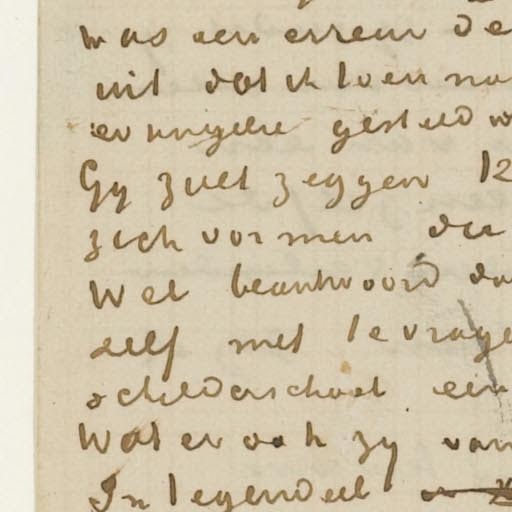 was een erreur de
uit dat ik toen na
evangelie gesteld w
Gy zult zeggen 12
zich vormen die
Wel beantwoord da
zelf met te vrage
schilderschool een
Wat er ook zy van
In tegendeel